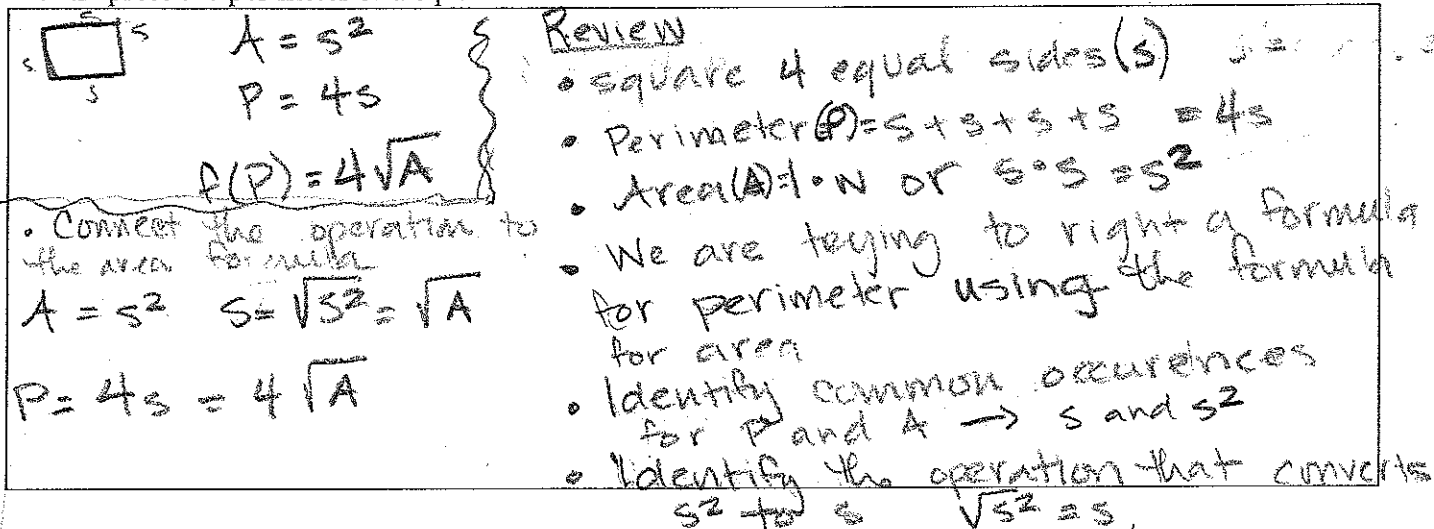 s
s
s
s
A = s²
P = 4s
f(P) = 4√A
• Connect the operation to
the area formula
A = s² s = √s² = √A
P = 4s = 4√A
Review
• square 4 equal sides (s)
• Perimeter (P) = s + s + s + s = 4s
• Area (A) = l • w or s • s = s²
• We are teying to right a formula
for perimeter using the formula
for area
• Identify common occurences
for P and A → s and s²
• Identify the operation that converts
s² to s √s² = s.